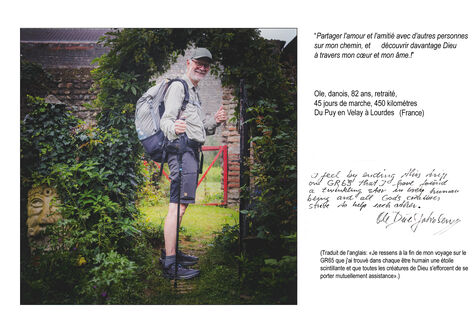 "Partager l'amour et l'amitié avec d'autres personnes
sur mon chemin, et découvrir davantage Dieu
à travers mon cœur et mon âme.!"
Ole, danois, 82 ans, retraité,
45 jours de marche, 450 kilomètres
Du Puy en Velay à Lourdes (France)
I feel by ending this my
on GR65 that I have found
a twinkling star in every human
being and all Gods creatures
strive to help each other.
(Traduit de l'anglais: «Je ressens à la fin de mon voyage sur le
GR65 que j'ai trouvé dans chaque être humain une étoile
scintillante et que toutes les créatures de Dieu s'efforcent de se
porter mutuellement assistance».)